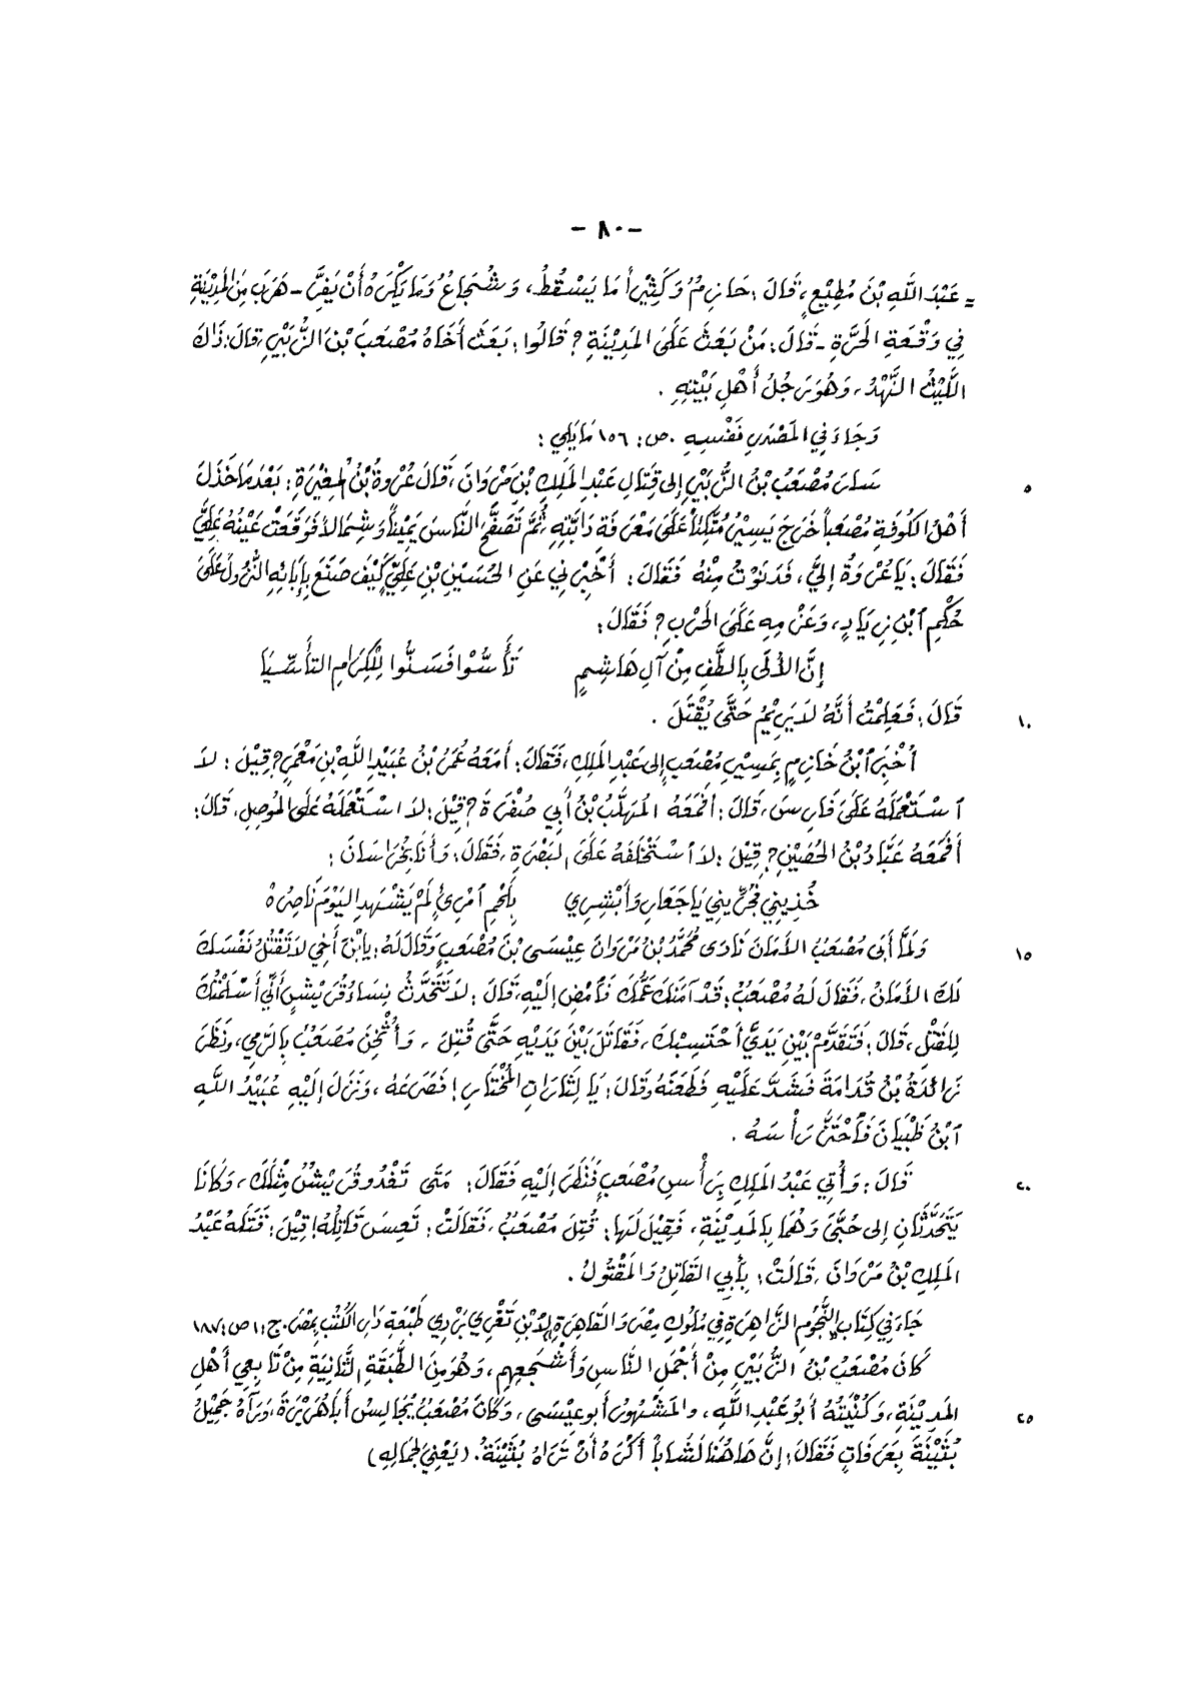 - ٨٠ -
= عَبْدَ اللَّهِ بْنَ مُطِيْعٍ، قَالَ: حَازِمٌ وَكَثِيْرَاً مَا يَسْقُطُ، وَشُجَاعٌ وَمَا يَكْرَهُ أَنْ يَفِرَّ - هَرَبَ مِنَ المَدِيْنَةِ
فِي وَقْعَةِ الحَرَّةِ - قَالَ: مَنْ بَعَثَ عَلَى المَدِيْنَةِ؟ قَالُوا: بَعَثَ أَخَاهُ مُصْعَبَ بْنَ الزُّبَيْرِ، قَالَ: ذَاكَ
اللَّيْثُ النَّهْدُ، وَهُوَ رَجُلُ أَهْلِ بَيْتِهِ.
وَجَاءَ فِي المَصْدَرِ نَفْسِهِ. ص: ١٥٦ مَا يَلِي:
سَارَ مُصْعَبُ بْنُ الزُّبَيْرِ إلى قِتَالِ عَبْدِ المَلِكِ بْنِ مَرْوَانَ، قَالَ عُرْوَةُ بْنُ المُغِيْرَةِ: بَعْدَمَا خَذَلَ
٥
أَهْلُ الكُوفَةِ مُصْعَباً خَرَجَ يَسِيْرُ مُتَّكِئاً عَلَى مَعْرَفَةِ دَابَّتِهِ ثُمَّ تَصَفَّحَ النَّاسَ يَمِيْناً وَشِمَالاً فَوَقَعَتْ عَيْنُهُ عَلَيَّ
فَقَالَ: يَا عُرْوَةُ إِلَيَّ، فَدَنَوْتُ مِنْهُ فَقَالَ: أَخْبِرْنِي عَنِ الحُسَيْنِ بْنِ عَلِيٍّ كَيْفَ صَنَعَ بِإِبَائِهِ النُّزُولَ عَلَى
حُكْمِ ٱبْنِ زِيَادٍ، وَعَزْمِهِ عَلَى الحَرْبِ؟ فَقَالَ:
إِنَّ الأُلَى بِالطَّفِّ مِنْ آلِ هَاشِمٍ تَأَسَّوْا فَسَنُّوا لِلْكِرَامِ التَأَسِّيَا
قَالَ: فَعَلِمْتُ أَنَّهُ لاَ يَرِيْمُ حَتَّى يُقْتَلَ.
١٠
أُخْبِرَ ٱبْنُ خَازِمٍ بِمَسِيْرِ مُصْعَبٍ إلى عَبْدِ المَلِكِ، فَقَالَ: أَمَعَهُ عُمَرُ بْنُ عُبَيْدِ اللَّهِ بْنِ مَعْمَرٍ؟ قِيْلَ: لاَ
ٱسْتَعْمَلَهُ عَلَى فَارِسَ، قَالَ: أَفَمَعَهُ المُهَلَّبُ بْنُ أَبِي صُفْرَةَ؟ قِيْلَ: لاَ اسْتَعْمَلَهُ عَلَى المُوصِلِ، قَالَ:
أَفَمَعَهُ عَبَّادُ بْنُ الحُصَيْنِ؟ قِيْلَ: لاَ ٱسْتَخْلَفَهُ عَلَى البَصْرَةِ، فَقَالَ: وَأَنَا بِخُرَاسَانَ:
خُذِيْنِي فَجُرِّيْنِي يَا جَعَارِ وَأَبْشِرِي بِلَحْمِ ٱمْرِئٍ لَمْ يَشْهَدِ اليَوْمَ نَاصِرُهْ
وَلَمَّا أَبَى مُصْعَبُ الأَمَانَ نَادَى مُحَمَّدُ بْنُ مَرْوَانَ عِيْسَى بْنَ مُصْعَبٍ وَقَالَ لَهُ: يَا بْنَ أَخِي لاَ تَقْتُلْ نَفْسَكَ
١٥
لَكَ الأَمَانُ، فَقَالَ لَهُ مُصْعَبُ: قَدْ آمَنَكَ عَمُّكَ فَٱمْضِ إِلَيْهِ، قَالَ: لاَ تَتَحَدَّثُ نِسَاءُ قُرَيْشٍ أَنِّي أَسْلَمْتُكَ
لِلْقَتْلِ، قَالَ: فَتَقَدَّمْ بَيْنَ يَدَيَّ أَحْتَسِبْكَ، فَقَاتَلَ بَيْنَ يَدَيْهِ حَتَّى قُتِلَ، وَأُثْخِنَ مُصْعَبُ بِالرَّمِي، وَنَظَرَ
زَائِدَةُ بْنُ قُدَامَةَ فَشَدَّ عَلَيْهِ فَطَعَنَهُ وَقَالَ: يَا لِثَارَاتِ المُخْتَارِ! فَصَرَعَهُ، وَنَزَلَ إِلَيْهِ عُبَيْدُ اللَّهِ
ٱبْنُ ظَبْيَانَ فَٱحْتَزَّ رَأْسَهُ.
قَالَ: وَأُتِيَ عَبْدُ المَلِكِ بِرَأْسِ مُصْعَبٍ فَنَظَرَ إِلَيْهِ فَقَالَ: مَتَى تَغْذُو قُرَيْشُ مِثْلَكَ، وَكَانَا
٢٠
يَتَحَدَّثَانِ إلى حُبَّى وَهُمَا بِالمَدِيْنَةِ، فَقِيْلَ لَهَا: قُتِلَ مُصْعَبُ، فَقَالَتْ: تَعِسَ قَاتِلُهُ! قِيْلَ: قَتَلَهُ عَبْدُ
المَلِكِ بْنُ مَرْوَانَ، قَالَتْ: بِأَبِي القَاتِلُ وَالمَقْتُولُ.
جَاءَ فِي كِتَابِ النُّجُومِ الزَّاهِرَةِ فِي مُلُوكِ مِصْرَ وَالقَاهِرَةِ لِابْنِ تَغْرِي بَرْدِي طَبْعَةِ دَارِ الكُتُبِ بِمِصْرَ. ج: ١ ص: ١٨٧
كَانَ مُصْعَبُ بْنُ الزُّبَيْرِ مِنْ أَجْمَلِ النَّاسِ وَأَشْجَعِهِمِ، وَهُوَ مِنَ الطَّبَقَةِ الثَّانِيَةِ مِنْ تَابِعِي أَهْلِ
المَدِيْنَةِ، وَكُنْيَتُهُ أَبُو عَبْدِ اللَّهِ، والمَشْهُورُ أَبو عِيْسَى، وَكَانَ مُصْعَبُ يُجَالِسُ أَبَا هُرَيْرَةَ، وَرَآهُ جَمِيْلُ
٢٥
بُثَيْنَةَ بِعَرَفَاتٍ فَقَالَ: إِنَّ هَاهُنَا لَشَاباً أَكْرَهُ أَنْ تَرَاهُ بُثَيْنَةُ. (يَعْنِي لِجَمَالِهِ)